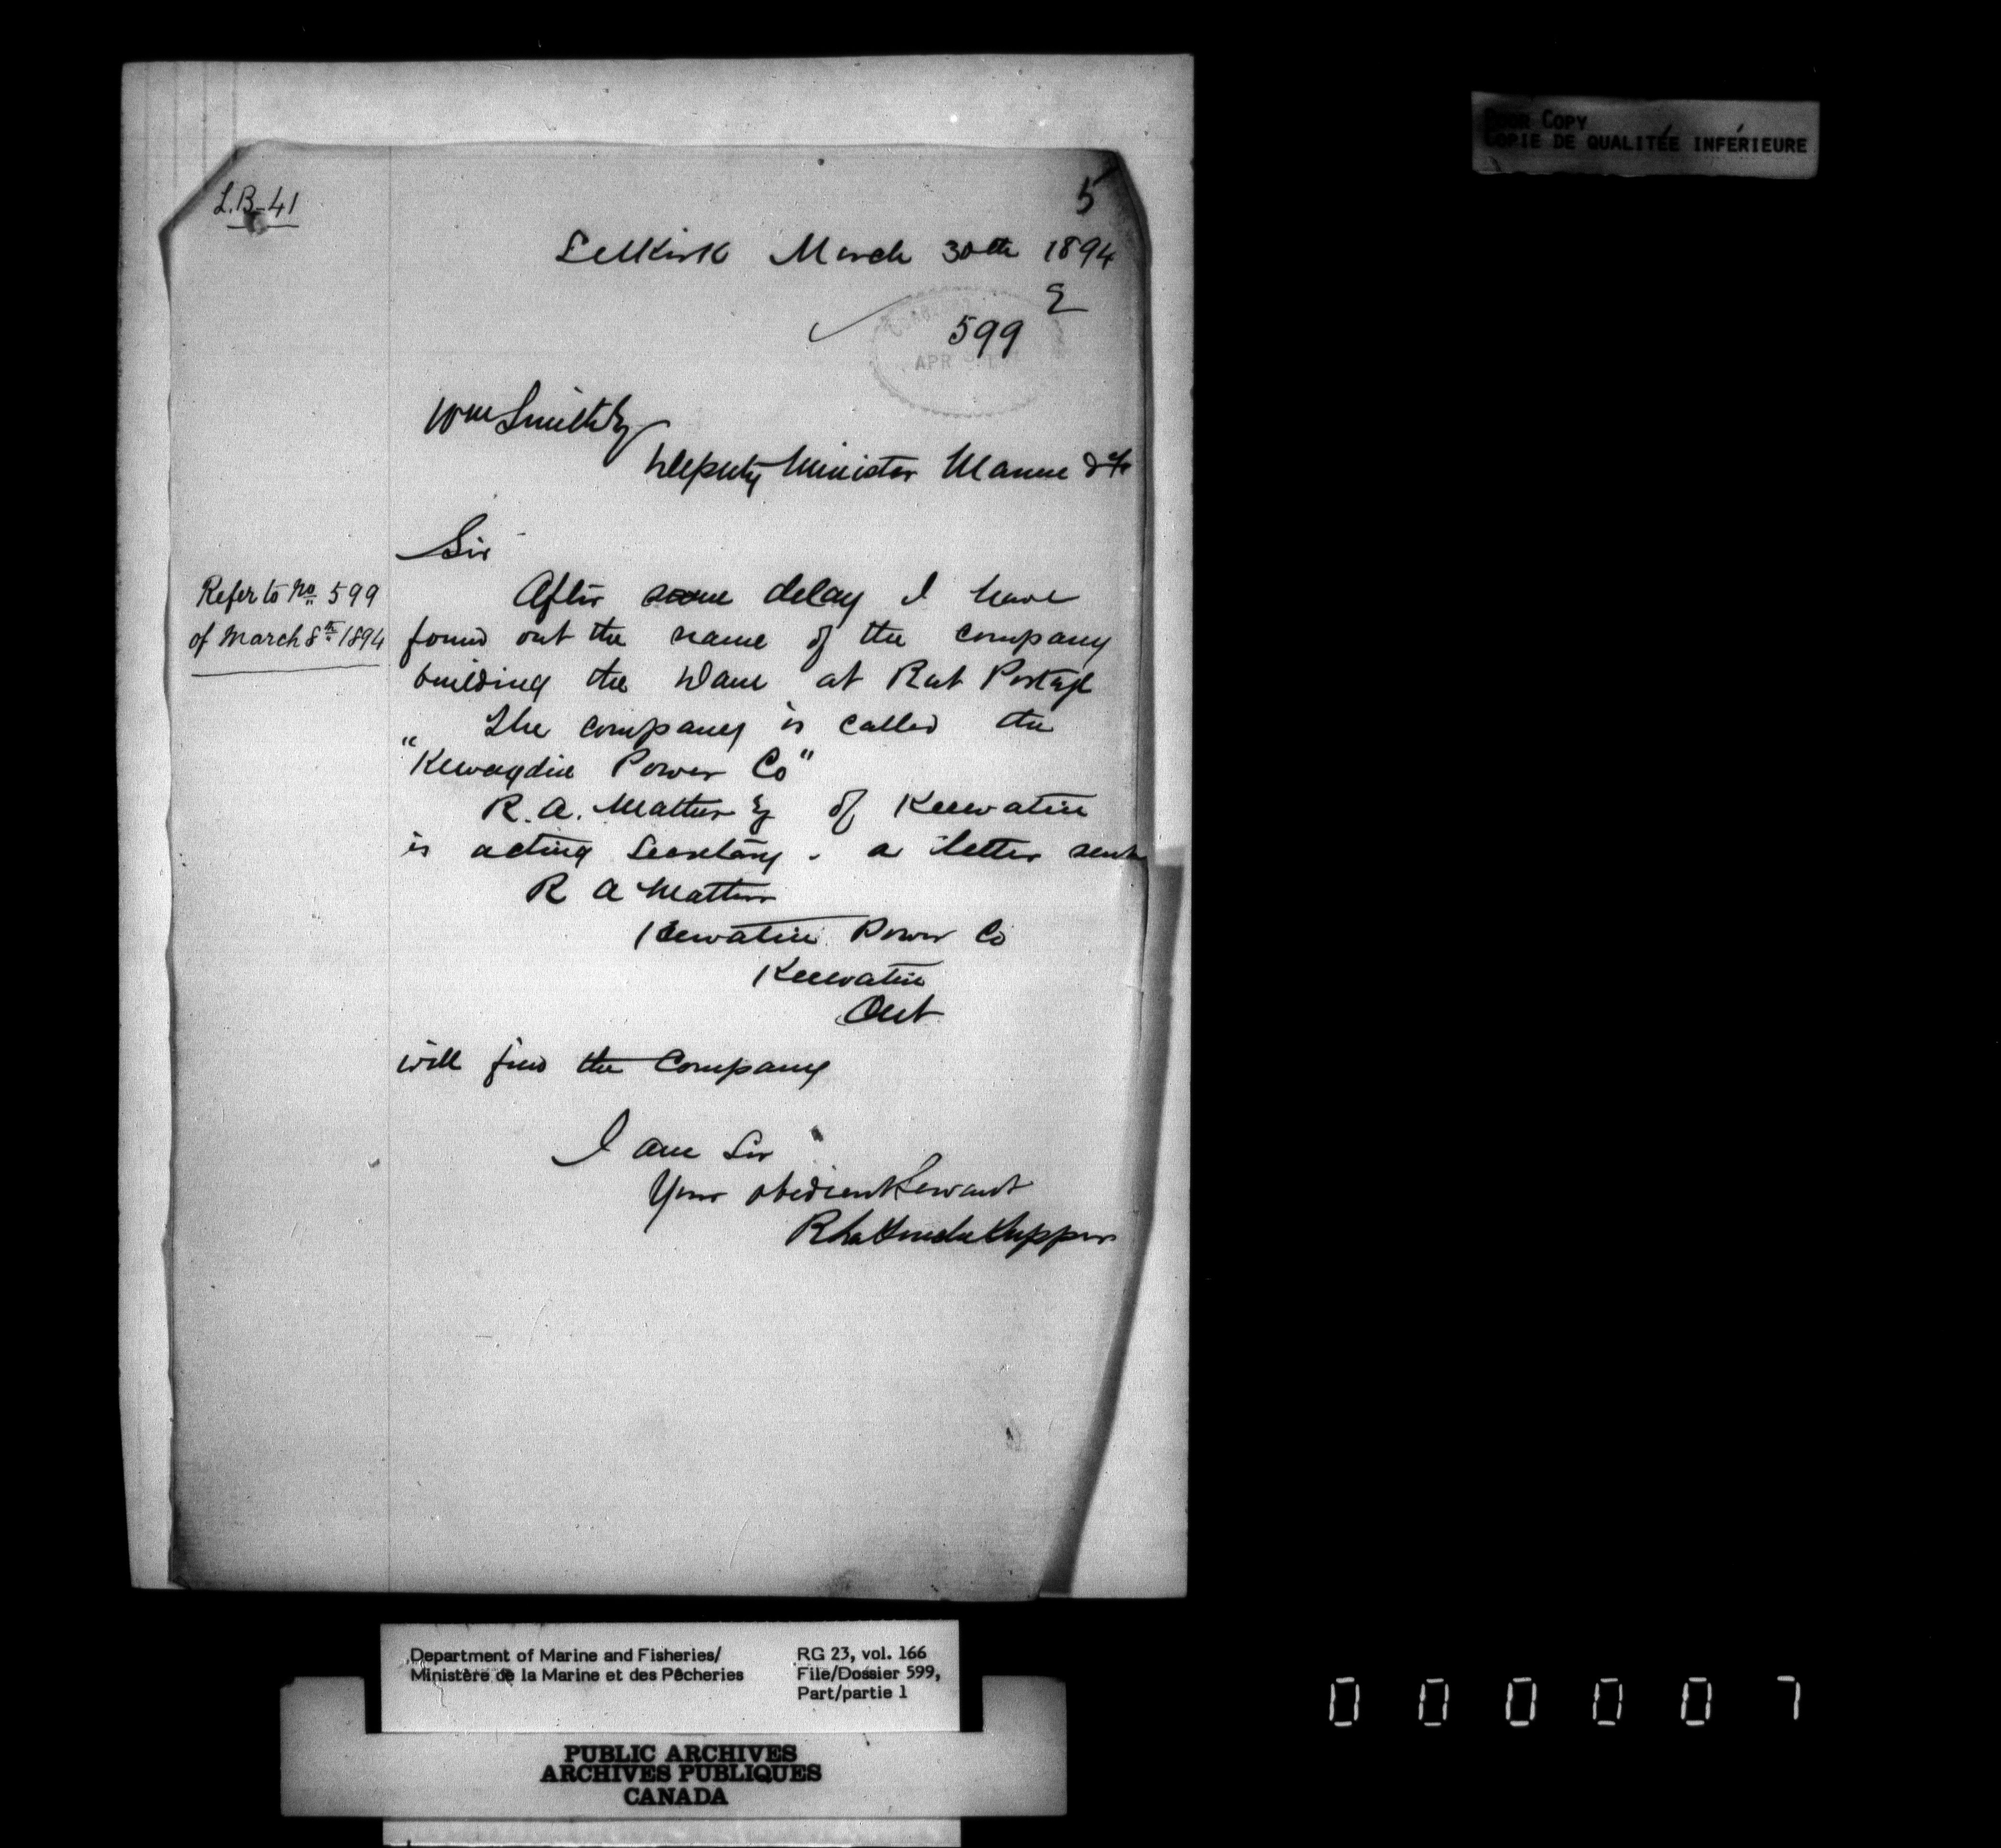 POOR COPY
COPIE DE QUALITÉE INFÉRIEURE
L.B-41
5
Selkirk March 30th 1894
599
APR
Wm Smith Esq
Deputy Minister Marine &c
Sir
Refer to No 599
of March 8th 1894
After some delay I have
found out the name of the company
building the Dam at Rat Portage
The company is called the
"Kewaydin Power Co"
R. A. Mather Esq of Keewatin
is acting Secretary. a letter sent
R A Mather
Keewatin Power Co
Keewatin
Ont
will find the Company
I am Sir
Your obedient Servant
R LaTouche Tupper
Department of Marine and Fisheries/
Ministère de la Marine et des Pêcheries
RG 23, vol. 166
File/Dossier 599,
Part/partie 1
PUBLIC ARCHIVES
ARCHIVES PUBLIQUES
CANADA
000007